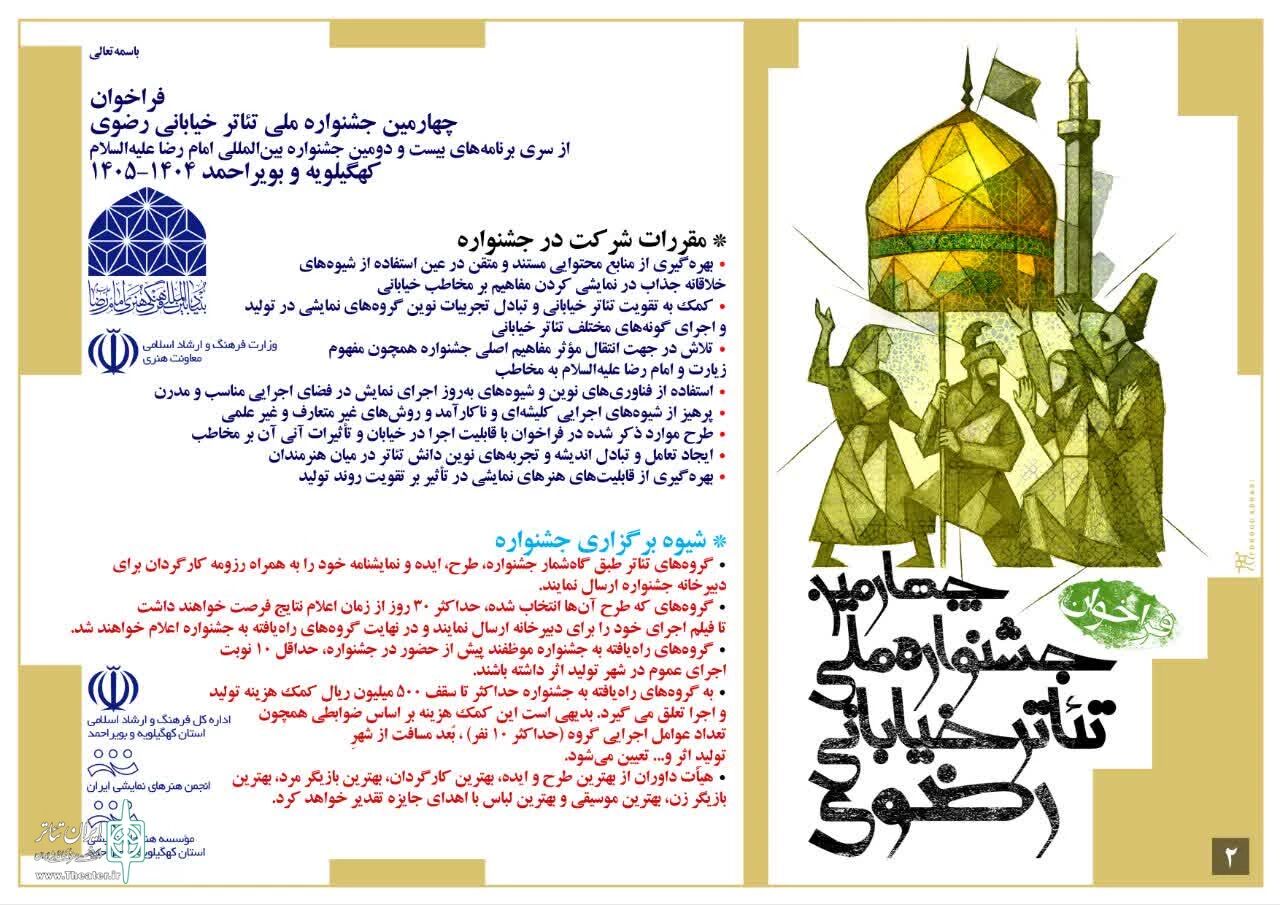 باسمه تعالی
فراخوان
چهارمین جشنواره ملی تئاتر خیابانی رضوی
از سری برنامه‌های بیست و دومین جشنواره بین‌المللی امام رضا علیه‌السلام
کهگیلویه و بویراحمد ۱۴۰۴-۱۴۰۵
* مقررات شرکت در جشنواره
• بهره‌گیری از منابع محتوایی مستند و متقن در عین استفاده از شیوه‌های
خلاقانه جذاب در نمایشی کردن مفاهیم بر مخاطب خیابانی
• کمک به تقویت تئاتر خیابانی و تبادل تجربیات نوین گروه‌های نمایشی در تولید
و اجرای گونه‌های مختلف تئاتر خیابانی
• تلاش در جهت انتقال مؤثر مفاهیم اصلی جشنواره همچون مفهوم
زیارت و امام رضا علیه‌السلام به مخاطب
• استفاده از فناوری‌های نوین و شیوه‌های به‌روز اجرای نمایش در فضای اجرایی مناسب و مدرن
• پرهیز از شیوه‌های اجرایی کلیشه‌ای و ناکارآمد و روش‌های غیر متعارف و غیر علمی
• طرح موارد ذکر شده در فراخوان با قابلیت اجرا در خیابان و تأثیرات آنی آن بر مخاطب
• ایجاد تعامل و تبادل اندیشه و تجربه‌های نوین دانش تئاتر در میان هنرمندان
• بهره‌گیری از قابلیت‌های هنرهای نمایشی در تأثیر بر تقویت روند تولید
* شیوه برگزاری جشنواره
• گروه‌های تئاتر طبق گاه‌شمار جشنواره، طرح، ایده و نمایشنامه خود را به همراه رزومه کارگردان برای
دبیرخانه جشنواره ارسال نمایند.
• گروه‌های که طرح آن‌ها انتخاب شده، حداکثر ۳۰ روز از زمان اعلام نتایج فرصت خواهند داشت
تا فیلم اجرای خود را برای دبیرخانه ارسال نمایند و در نهایت گروه‌های راه‌یافته به جشنواره اعلام خواهند شد.
• گروه‌های راه‌یافته به جشنواره موظفند پیش از حضور در جشنواره، حداقل ۱۰ نوبت
اجرای عموم در شهر تولید اثر داشته باشند.
• به گروه‌های راه‌یافته به جشنواره حداکثر تا سقف ۵۰۰ میلیون ریال کمک هزینه تولید
و اجرا تعلق می گیرد. بدیهی است این کمک هزینه بر اساس ضوابطی همچون
تعداد عوامل اجرایی گروه (حداکثر ۱۰ نفر) ، بُعد مسافت از شهرِ
تولید اثر و... تعیین می‌شود.
• هیأت داوران از بهترین طرح و ایده، بهترین کارگردان، بهترین بازیگر مرد، بهترین
بازیگر زن، بهترین موسیقی و بهترین لباس با اهدای جایزه تقدیر خواهد کرد.
بنیاد بین‌المللی فرهنگی هنری امام رضا
وزارت فرهنگ و ارشاد اسلامی
معاونت هنری
اداره کل فرهنگ و ارشاد اسلامی
استان کهگیلویه و بویراحمد
انجمن هنرهای نمایشی ایران
مؤسسه
استان
ایران تئاتر
www.Theater.ir
چهارمین
فراخوان
جشنواره ملی
تئاتر خیابانی
رضوی
۲